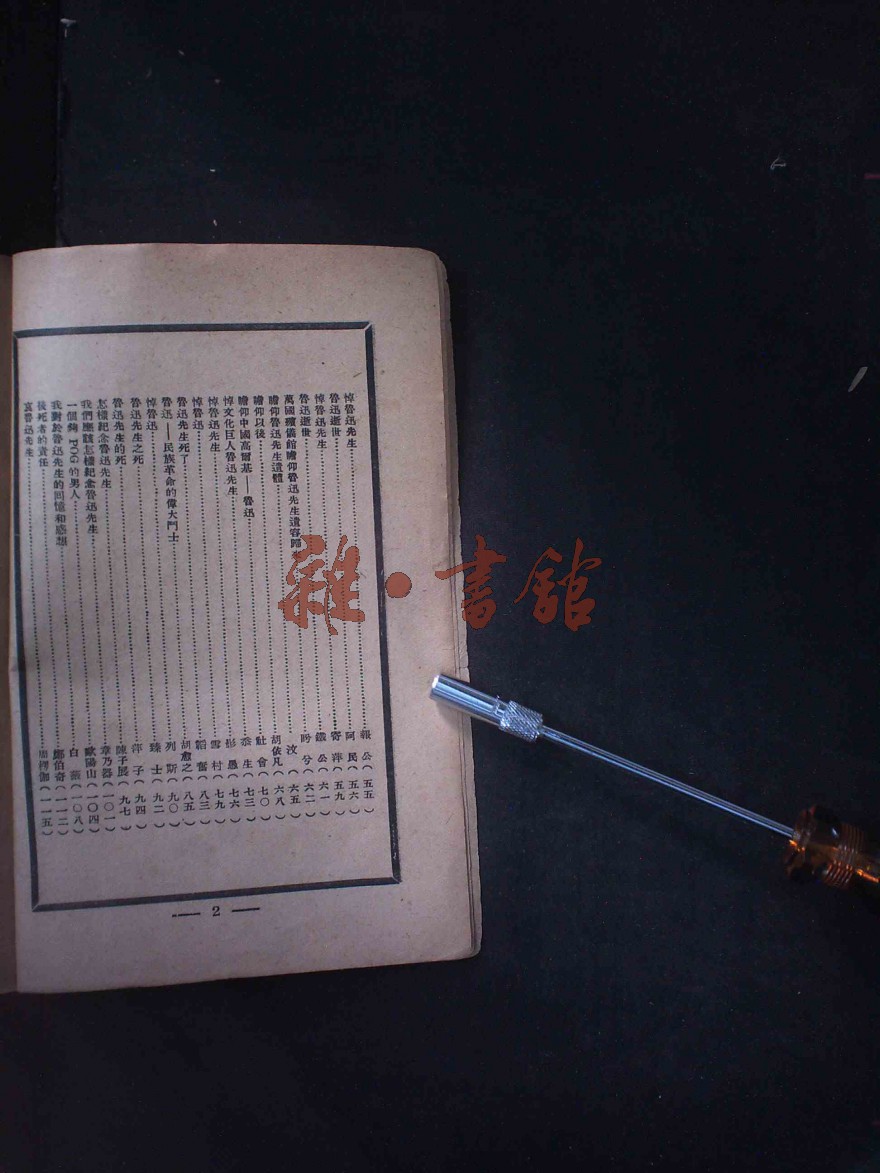 悼魯迅先生……報公(五五)
魯迅逝世……阿民(五六)
悼魯迅先生……寄萍(五九)
魯迅逝世……鐵公(六一)
萬國殯儀館瞻仰魯迅先生遺容歸……吟兮(六二)
瞻仰魯迅先生遺體……汶(六五)
瞻仰以後……胡依凡(六八)
瞻仰中國高爾基——魯迅……社會(七〇)
悼文化巨人魯迅先生……恭生(七三)
悼魯迅先生……彤愚(七六)
悼魯迅……雪村(七九)
魯迅先生死了……韜奮(八三)
魯迅——民族革命的偉大鬥士……胡愈之(八五)
悼魯迅……列斯(九〇)
魯迅先生之死……臻士(九二)
魯迅先生的死……萍子(九四)
怎樣紀念魯迅先生……陳子展(九七)
我們應該怎樣紀念魯迅先生……章乃器(一〇一)
一個夠FOG的男人……歐陽山(一〇四)
我對於魯迅先生的回憶和感想……白薇(一〇八)
後死者的責任……鄭伯奇(一一二)
哀魯迅先生……周楞伽(一一五)
— 2 —
雜·書館